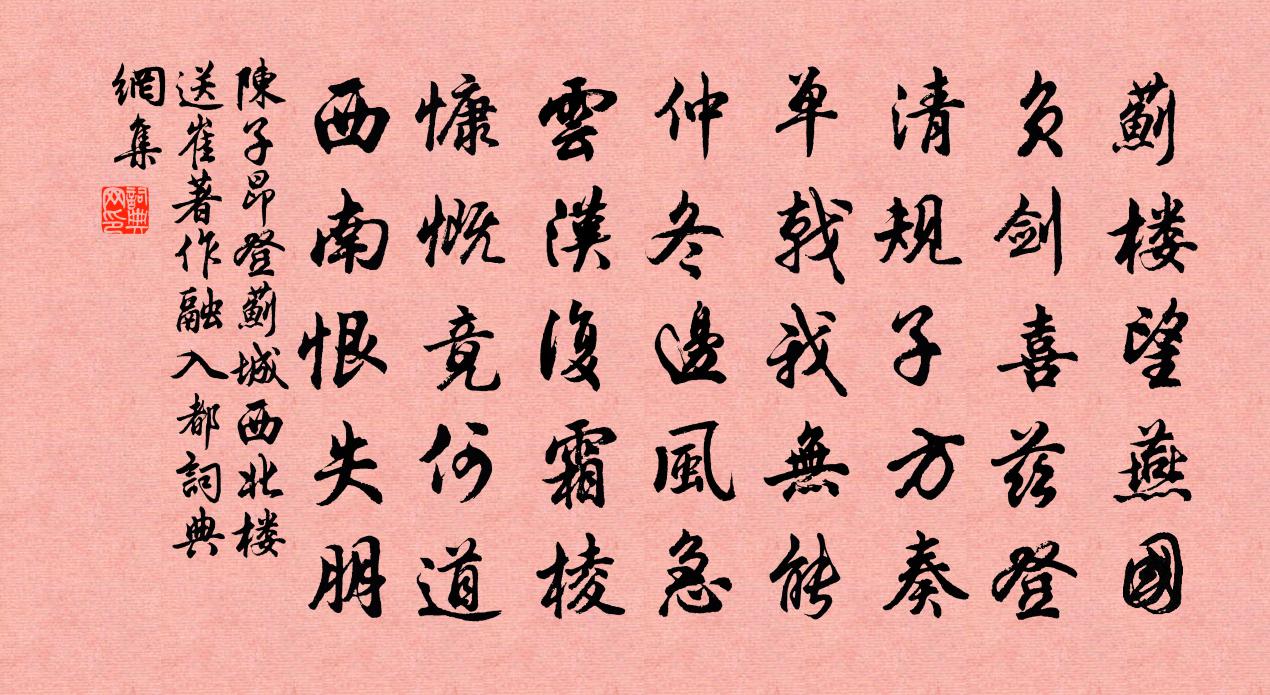 薊楼望燕國
负剑喜茲登
清規子方奏
单戟我無能
仲冬邊風急
雲漢復霜棱
慷慨竟何道
西南恨失朋
陳子昂登薊城西北楼
送崔著作融入都詞典
網集
詞典网印